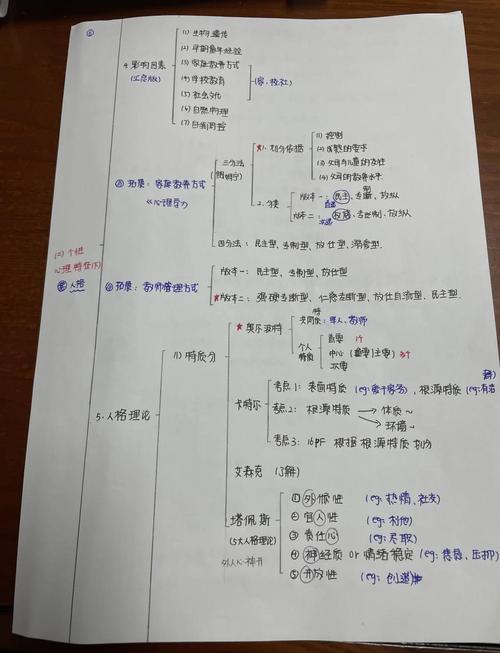 ⑥
4.影响因素
(汇总版)
(1) 生物遗传
(2) 早期童年经验
(3) 家庭教养方式
(4) 学校教育
(5) 社会文化
(家、校、社)
(6) 自然物理
(7) 自我调控
拓展：家庭教养方式
《心理学》
三分法
★1. 划分依据
(1) 控制
(2) 成熟的要求
(3) 父母与儿童的
(4) 父母的教养水平
2. 分类
版本一：民主型、专断、放纵
版本二：权威、专制、放纵
四分法：民主型、专制型、放任型、溺爱型.
(二) 个性
心理特征(下)
人格
拓展：教师管理方式
版本一：民主型、专制型、放任型
★版本二：强硬专断型、仁慈专断型、放任自流型、民主型.
5.人格理论
(1) 特质分
★奥尔波特
共同特：军人、教师
个人
特质
首要 1个
中心 (重要|主要) 多个
次要
卡特尔
考点1：表面特质 (eg:爱干家务)，根源特质 (eg:有责
考点2：根源特质 → 体质~
→ 环境~
考点3：16PF 根据根源特质划分
艾森克 (了解)
塔佩斯
(5大人格理论)
外人心神开
①外倾性 (eg: 热情、社交)
②宜人性 (eg: 利他)
③责任心 (eg: 尽职)
④神经质 or 情绪稳定 (eg: 焦虑、压抑)
⑤开放性 (eg: 创造)